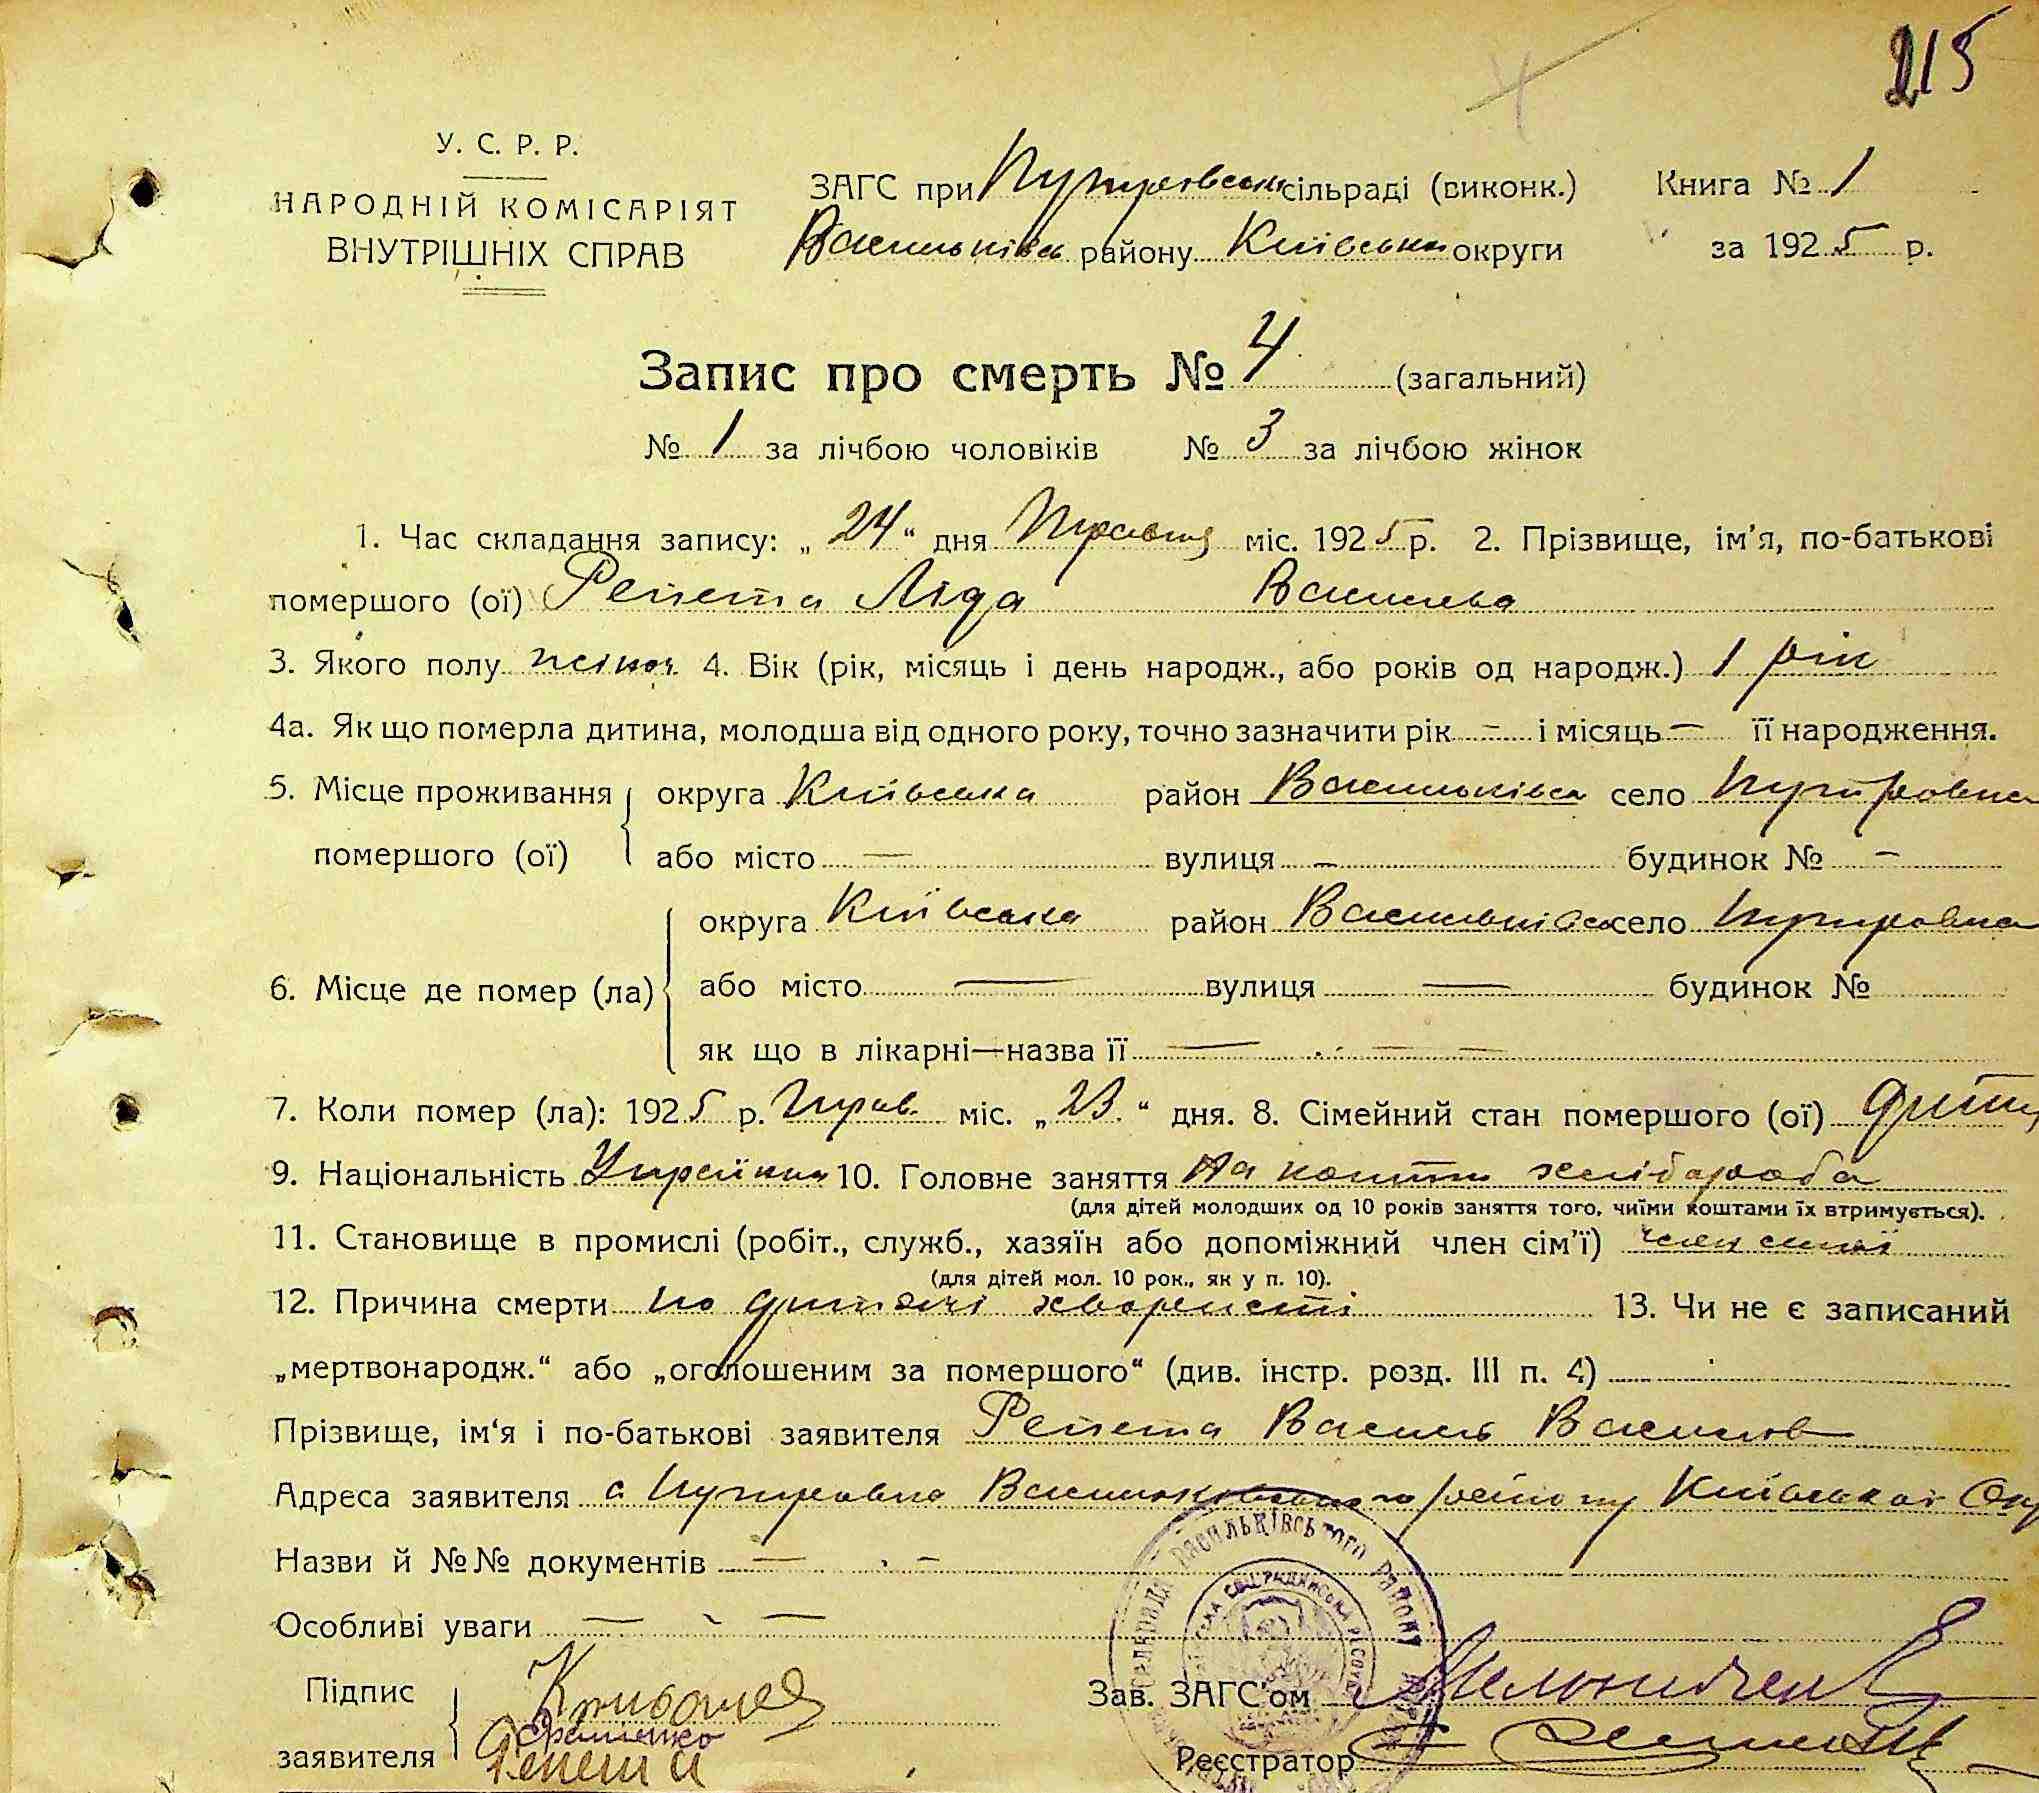 215
У. С. Р. Р.
НАРОДНІЙ КОМІСАРІЯТ
ВНУТРІШНІХ СПРАВ
ЗАГС при сільраді (виконк.) Книга № 1
Васильків району Київськи округи за 1925 р.
Запис про смерть № 4 (загальний)
№ 1 за лічбою чоловіків № 3 за лічбою жінок
1. Час складання запису: „24“ дня Травня міс. 1925 р. 2. Прізвище, ім'я, по-батькові
помершого (ої) Репета Ліда Василева
3. Якого полу жіноч. 4. Вік (рік, місяць і день народж., або років од народж.) 1 рік
4а. Як що померла дитина, молодша від одного року, точно зазначити рік — і місяць — її народження.
5. Місце проживання округа Київська район Васильківськ село Путровка
помершого (ої) або місто — вулиця — будинок № —
округа Київська район Васильківськ село Путровка
6. Місце де помер (ла) або місто — вулиця — будинок №
як що в лікарні—назва її — — —
7. Коли помер (ла): 1925 р. Трав. міс. „23.“ дня. 8. Сімейний стан помершого (ої) дити
9. Національність Українка 10. Головне заняття на кошти хлібароба
(для дітей молодших од 10 років заняття того, чиїми коштами їх втримується).
11. Становище в промислі (робіт., служб., хазяїн або допоміжний член сім'ї) член сімї
(для дітей мол. 10 рок., як у п. 10).
12. Причина смерти по дитячі хворости 13. Чи не є записаний
„мертвонародж.“ або „оголошеним за помершого“ (див. інстр. розд. III п. 4)
Прізвище, ім'я і по-батькові заявителя Репета Василь Василев
Адреса заявителя с. Путровка Васильківського району Київськоі Окр
Назви й №№ документів — —
Особливі уваги — — —
Підпис
заявителя Репета
Зав. ЗАГС'ом
Реєстратор